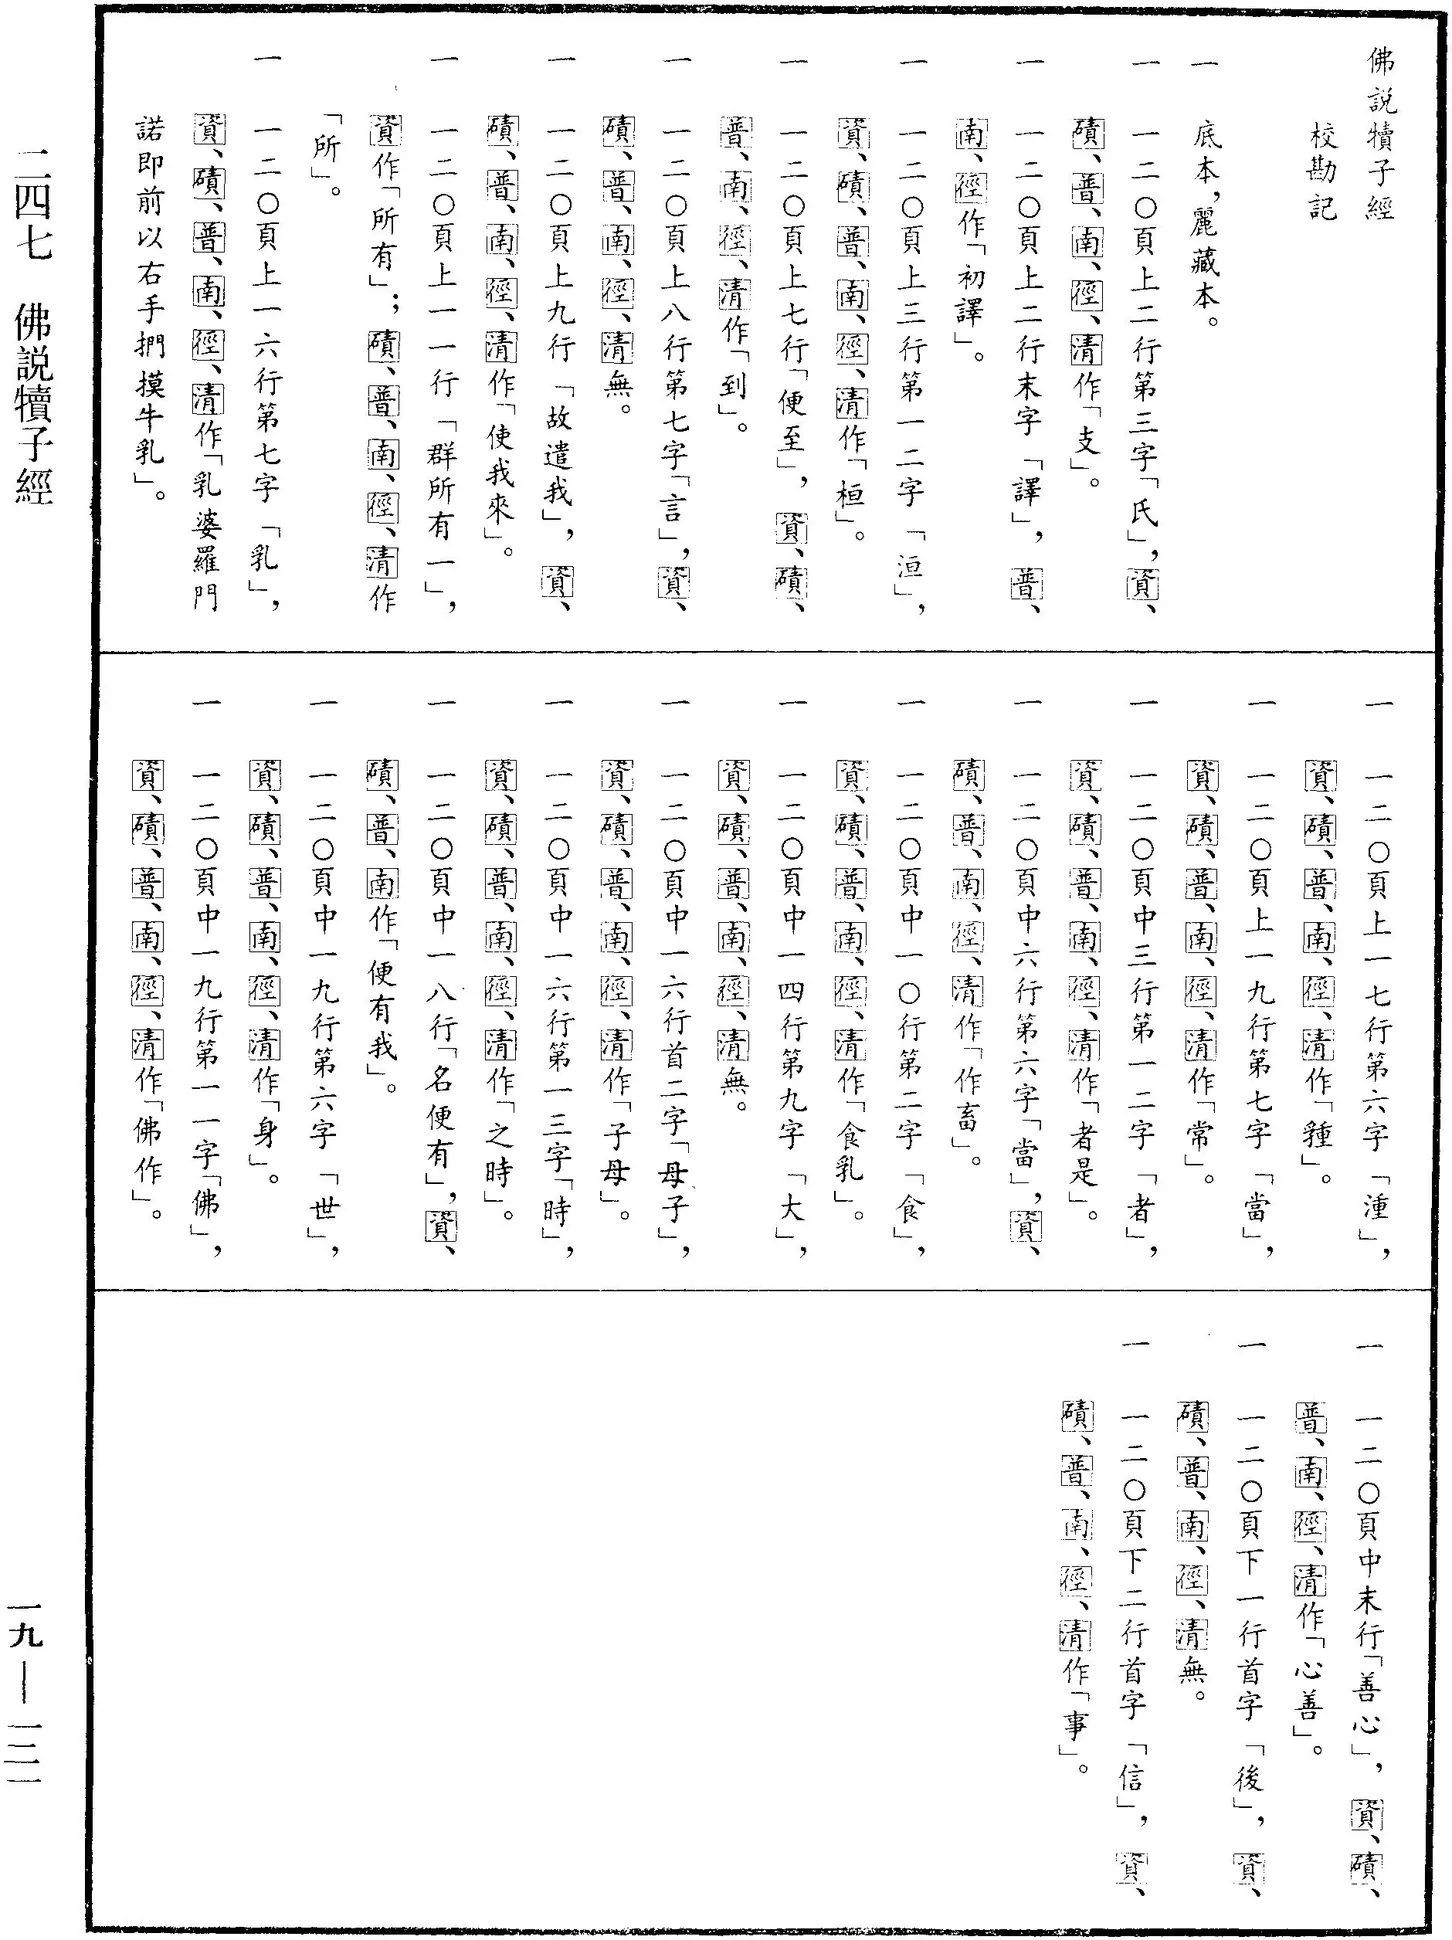 佛説犢子經
校勘記
一　底本，麗藏本。
一　一二〇頁上二行第三字「氏」，資、
磧、普、南、徑、清作「支」。
一　一二〇頁上二行末字「譯」，普、
南、徑作「初譯」。
一　一二〇頁上三行第一二字「洹」，
資、磧、普、南、徑、清作「桓」。
一　一二〇頁上七行「便至」，資、磧、
普、南、徑、清作「到」。
一　一二〇頁上八行第七字「言」，資、
磧、普、南、徑、清無。
一　一二〇頁上九行「故遣我」，資、
磧、普、南、徑、清作「使我來」。
一　一二〇頁上一一行「群所有一」，
資作「所有」；磧、普、南、徑、清作
「所」。
一　一二〇頁上一六行第七字「乳」，
資、磧、普、南、徑、清作「乳婆羅門
諾即前以右手捫摸牛乳」。
一　一二〇頁上一七行第六字「湩」，
資、磧、普、南、徑、清作「種」。
一　一二〇頁上一九行第七字「當」，
資、磧、普、南、徑、清作「常」。
一　一二〇頁中三行第一二字「者」，
資、磧、普、南、徑、清作「者是」。
一　一二〇頁中六行第六字「當」，資、
磧、普、南、徑、清作「作畜」。
一　一二〇頁中一〇行第二字「食」，
資、磧、普、南、徑、清作「食乳」。
一　一二〇頁中一四行第九字「大」，
資、磧、普、南、徑、清無。
一　一二〇頁中一六行首二字「母子」，
資、磧、普、南、徑、清作「子母」。
一　一二〇頁中一六行第一三字「時」，
資、磧、普、南、徑、清作「之時」。
一　一二〇頁中一八行「名便有」，資、
磧、普、南作「便有我」。
一　一二〇頁中一九行第六字「世」，
資、磧、普、南、徑、清作「身」。
一　一二〇頁中一九行第一一字「佛」，
資、磧、普、南、徑、清作「佛作」。
一　一二〇頁中末行「善心」，資、磧、
普、南、徑、清作「心善」。
一　一二〇頁下一行首字「後」，資、
磧、普、南、徑、清無。
一　一二〇頁下二行首字「信」，資、
磧、普、南、徑、清作「事」。
二四七　佛説犢子經
一九—一二一